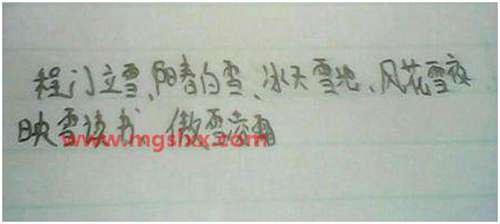 程门立雪、阳春白雪、冰天雪地、风花雪夜
映雪读书 傲雪凌霜
www.mgshxx.com